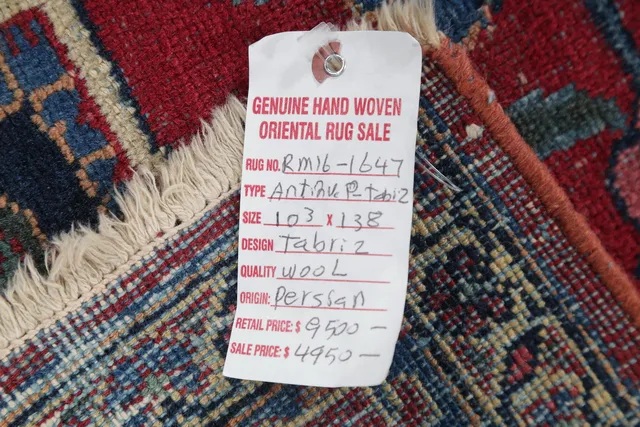 GENUINE HAND WOVEN
ORIENTAL RUG SALE
RUG NO. Rm16-1647
TYPE Antique P-tabiz
SIZE 10³ x 138
DESIGN Tabriz
QUALITY WOOL
ORIGIN: Perssan
RETAIL PRICE: $ 9500 -
SALE PRICE: $ 4950 -